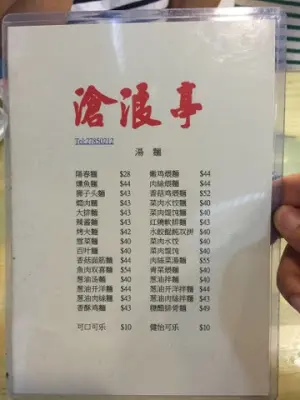 滄浪亭
Tel:27850212
湯 麵
陽春麵 $28 嫩鸡煨麵 $44
燻魚麵 $44 肉絲煨麵 $44
獅子头麵 $43 香菇鸡煨麵 $52
燜肉麵 $43 菜肉水饺麵 $40
大排麵 $43 菜肉馄饨麵 $40
辣醬麵 $43 红烧軟排麵 $43
烤夫麵 $42 水餃餛飩双拼 $40
雪菜麵 $40 菜肉水饺 $40
百叶麵 $40 菜肉馄饨 $40
香菇面筋麵 $44 肉絲菜湯麵 $55
魚肉双喜麵 $54 青菜煨麵 $40
葱油汤麵 $40 葱油拌麵 $40
葱油开洋麵 $44 葱油开洋拌麵 $44
葱油肉絲麵 $43 葱油肉絲拌麵 $43
香酥鸡麵 $43 糖醋排骨麵 $49
可口可乐 $10 健怡可乐 $10